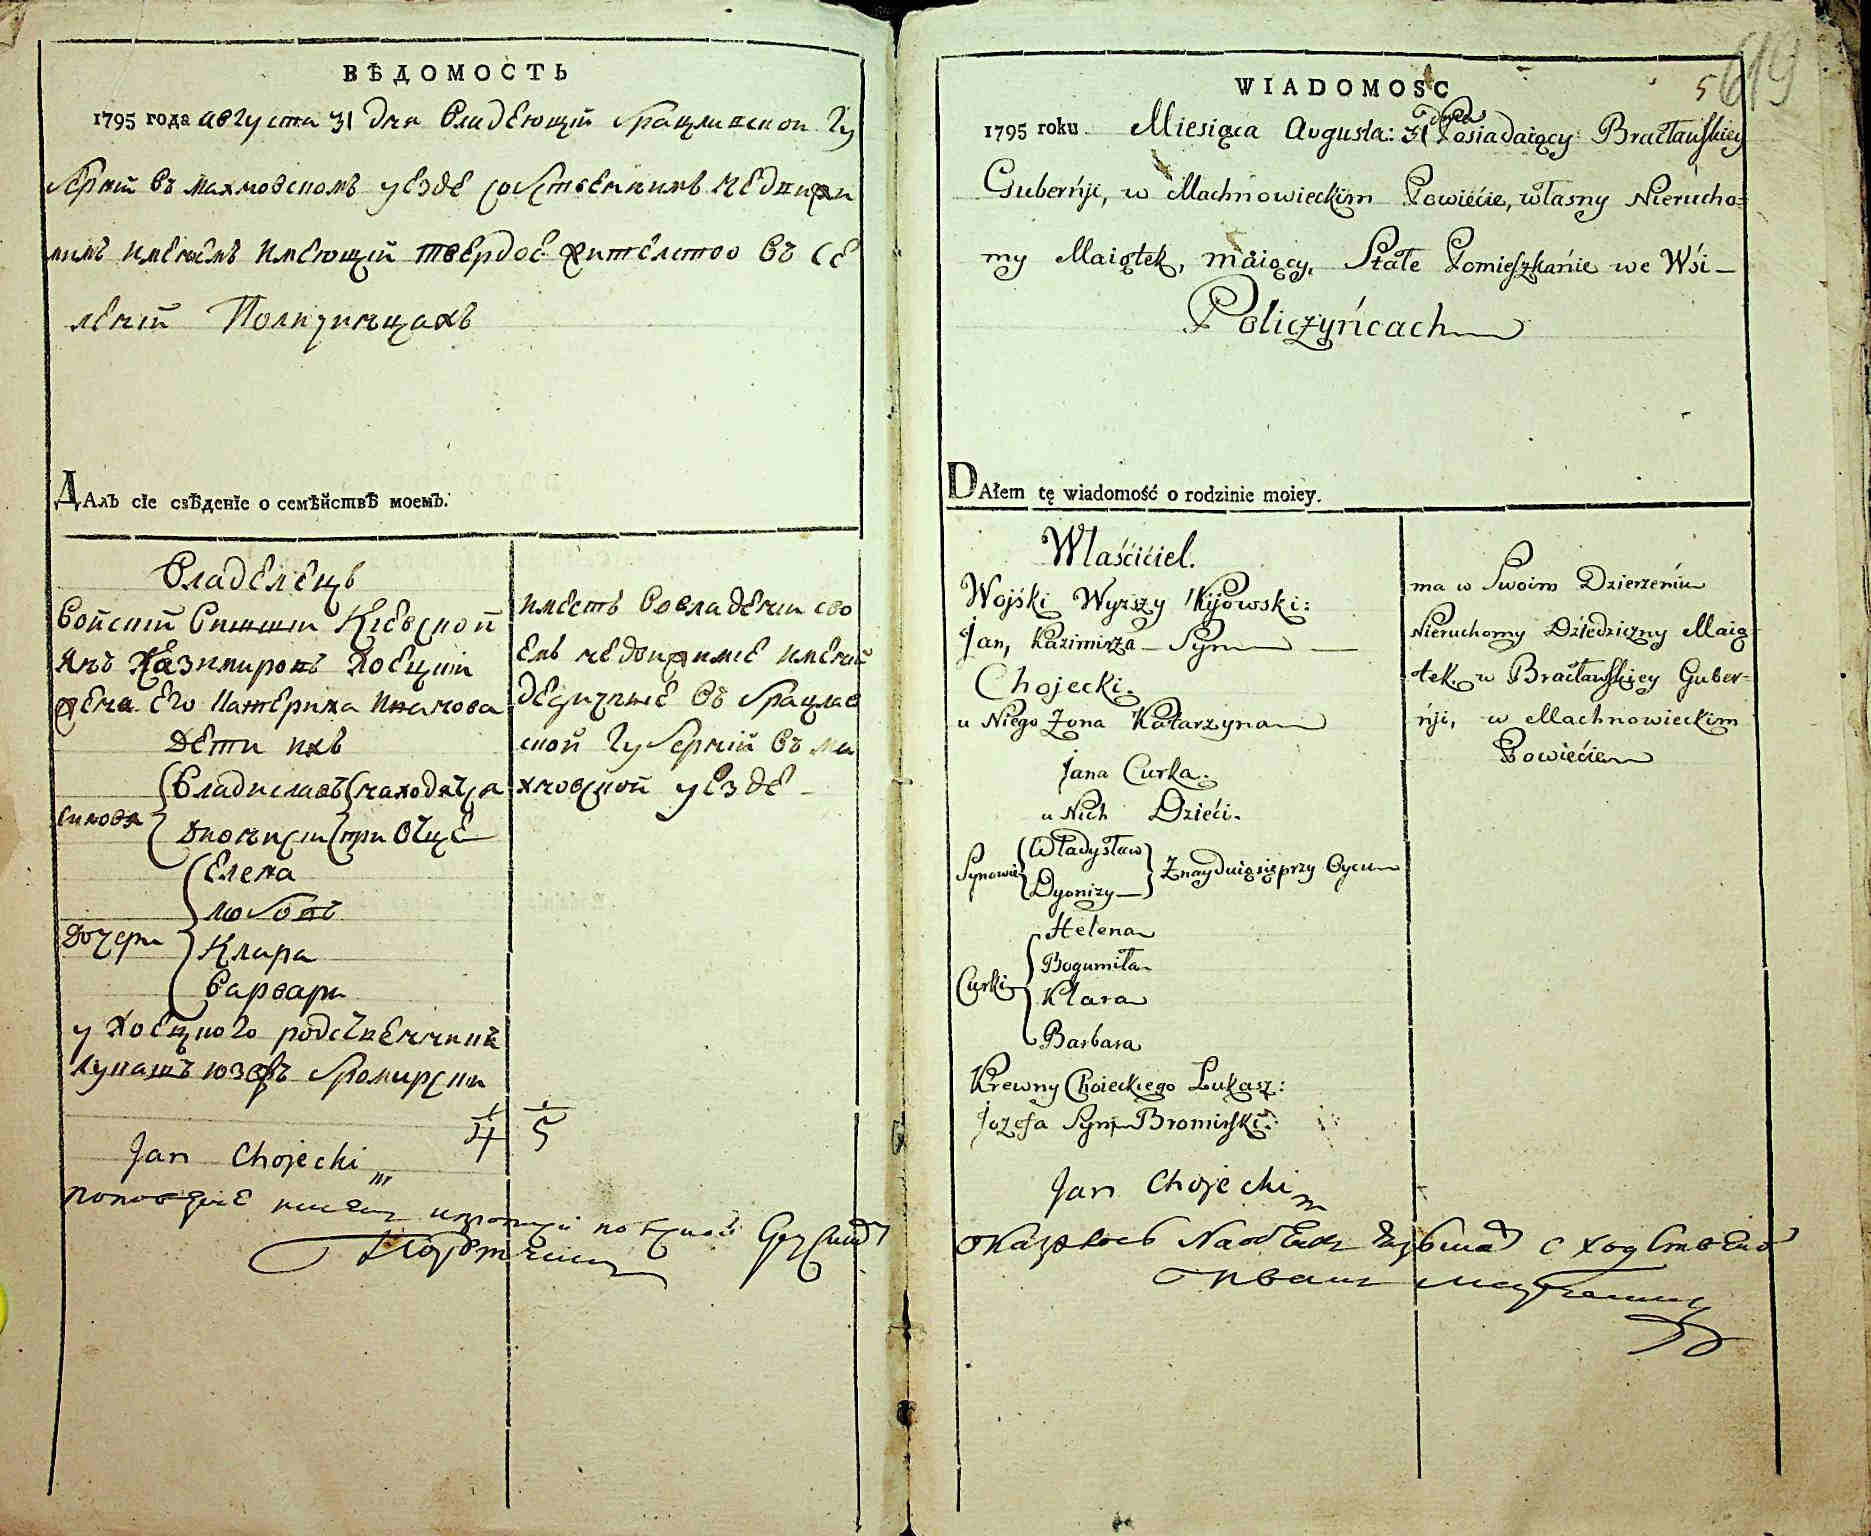 ВѢДОМОСТЬ
1795 года августа 31 дня владеющий брацлавской гу
берний въ махновскомъ уезде собственнимъ недвижи
мимъ имениемъ имеющий твердое жителство въ се
лений Поличинцахъ
Далъ сіе свѣденіе о семѣйствѣ моемъ.
Владелецъ
Войский Киевской
Янъ Казимировъ Хоецкий
жена его Катерина Иванова
Дети ихъ
Синовя Владиславъ находятся
Дионисий при Отце
Елена
Любовь
Дочери Клара
Варвара
у Хоецкого родственникъ
Лукашъ Юзефъ Бромирский
имеетъ во владении сво
емъ недвижимое имений
дедичное въ брацлав
ской губерний въ ма
хновской уезде
1/4 1/5
Jan Chojecki
WIADOMOSC
5 619
1795 roku Miesiąca Augusta: 31 Dnia Posiadaiący Bracławskiey
Gubernji, w Machnowieckim Powiécie, własny Nierucho=
my Maiątek, maiący, Stałe Pomieszkanie we Wsi
Policzyńcach
DAłem tę wiadomość o rodzinie moiey.
Właściciel.
Woyski Wyższy Kijowski:
Jan, Kazimirza Syn
Chojecki.
u Niego Żona Katarzyna
Jana Curka.
u Nich Dzieci.
Synowie Władysław
Dyonizy Znayduią się przy Oycu
Helena
Bogumiła
Curki Klara
Barbara
Krewny Choieckiego Łukasz:
Jozefa Syn Bromirski:
ma w Swoim Dzierzeniu
Nieruchomy Dziedziczny Maią
tek w Bracławskiey Guber=
nji, w Machnowieckim
Powiécie
Jan Chojecki